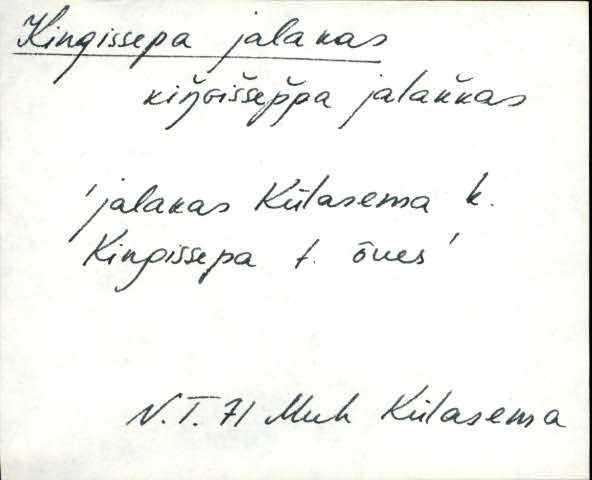 Kingissepa jalakas
kiŋ̆ɢiš̆šep̆pa jalak̆kas
'jalakas Külasema k.
Kingissepa t. õues'
N.T. 71 Muh Külasema